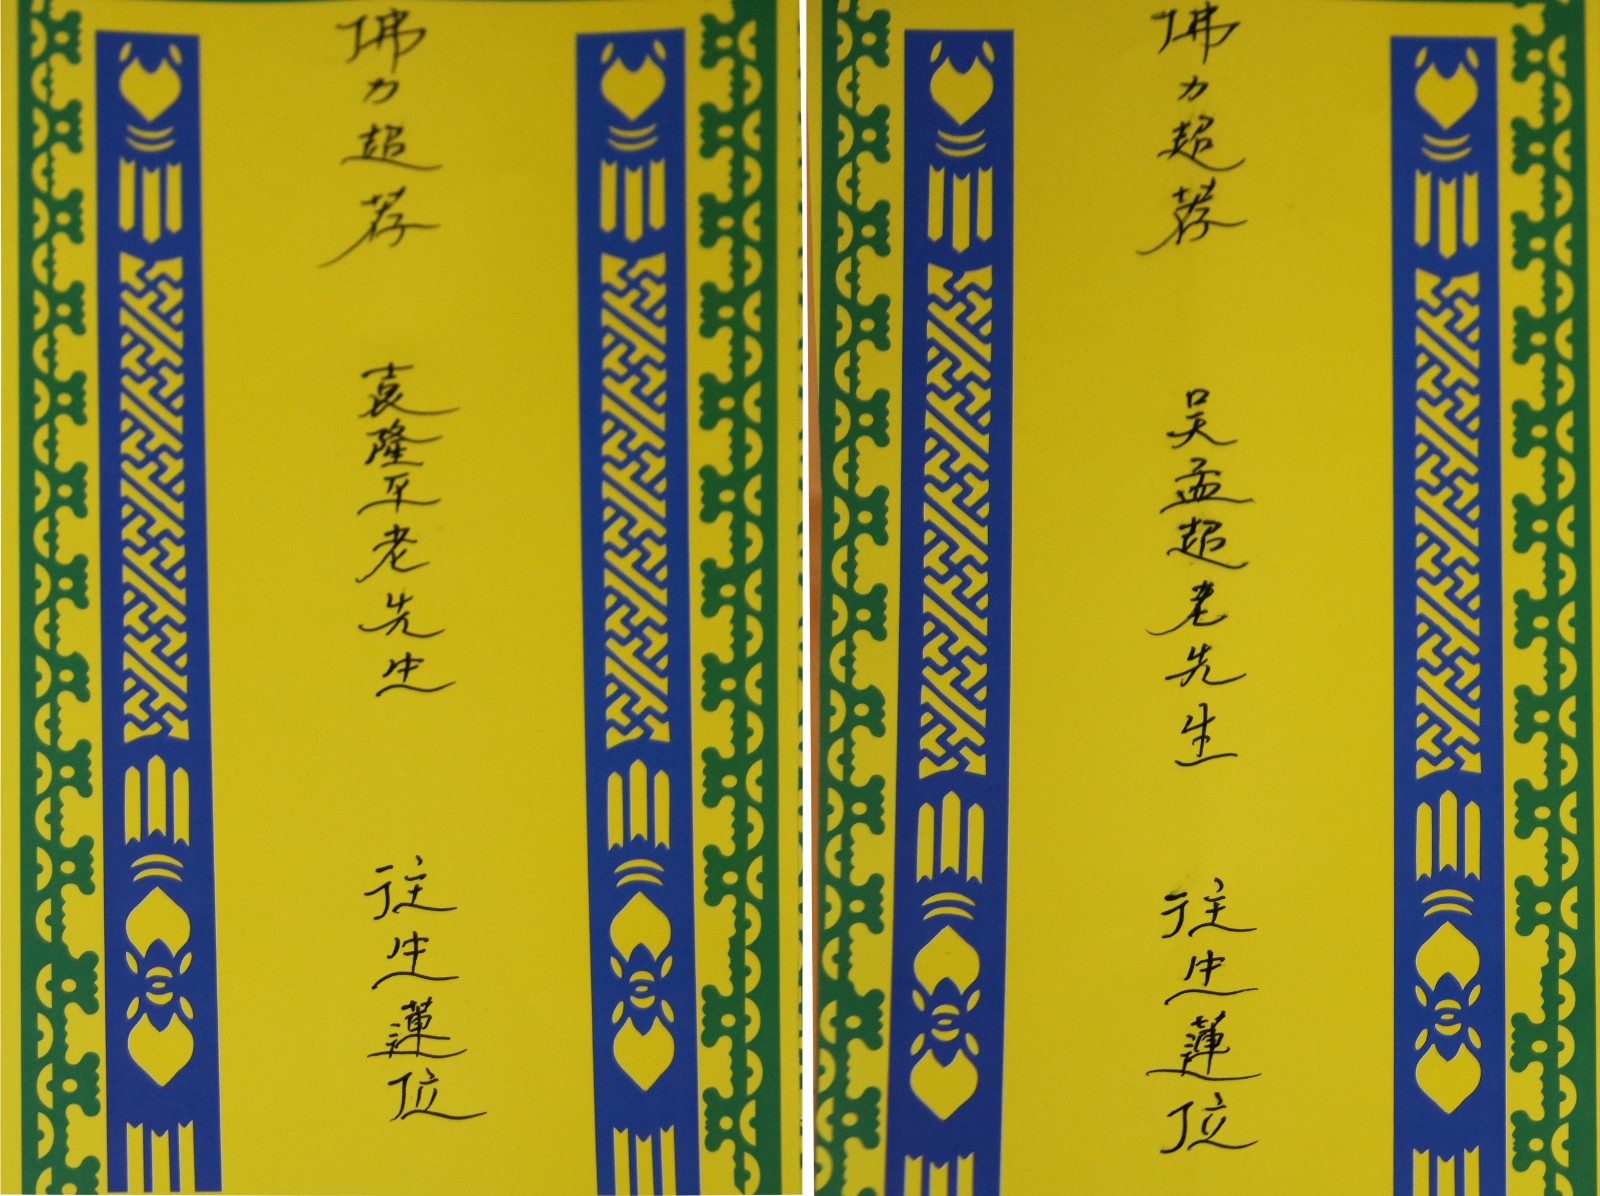 佛力超荐
袁隆平老先生
往生蓮位
佛力超荐
吴孟超老先生
往生蓮位